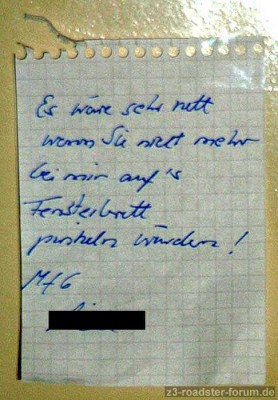 Es wäre sehr nett
wenn Sie nicht mehr
bei mir auf's
Fensterbrett
pinkeln würden!
MfG
z3-roadster-forum.de